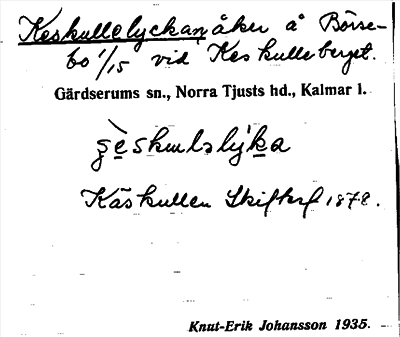 Keskullelyckan åker å Börse-
bo 1/15 vid Keskulleberget.
Gärdserums sn., Norra Tjusts hd., Kalmar l.
Käskullen Skifterf 1878.
Knut-Erik Johansson 1935.